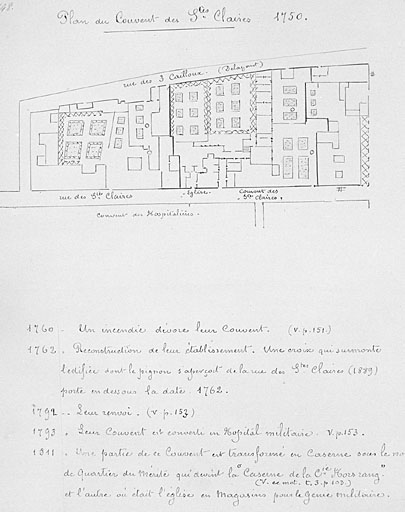 Plan du Couvent des Stes Claires 1750.
rue des 3 Cailloux. (Delayant)
rue des Stes Claires
Eglise.
Couvent des
Stes Claires.
Couvent des Hospitalières.
1760 . Un incendie dévore leur Couvent. (v. p. 151.)
1762 . Reconstruction de leur établissement. Une croix qui surmonte
l'édifice dont le pignon s'aperçoit de la rue des Stes Claires (1889)
porte en dessous la date 1762.
1792 .. Leur renvoi. (v. p. 153)
1793 . Leur Couvent est converti en Hopital militaire. v. p. 153.
. Une partie de ce Couvent est transformé en Caserne sous le
de Quartier du Mérite qui devint la "Caserne de la
(V. ce mot. t. 3. p. 103.)
et l'autre où était l'église en Magasins pour le Génie militaire.